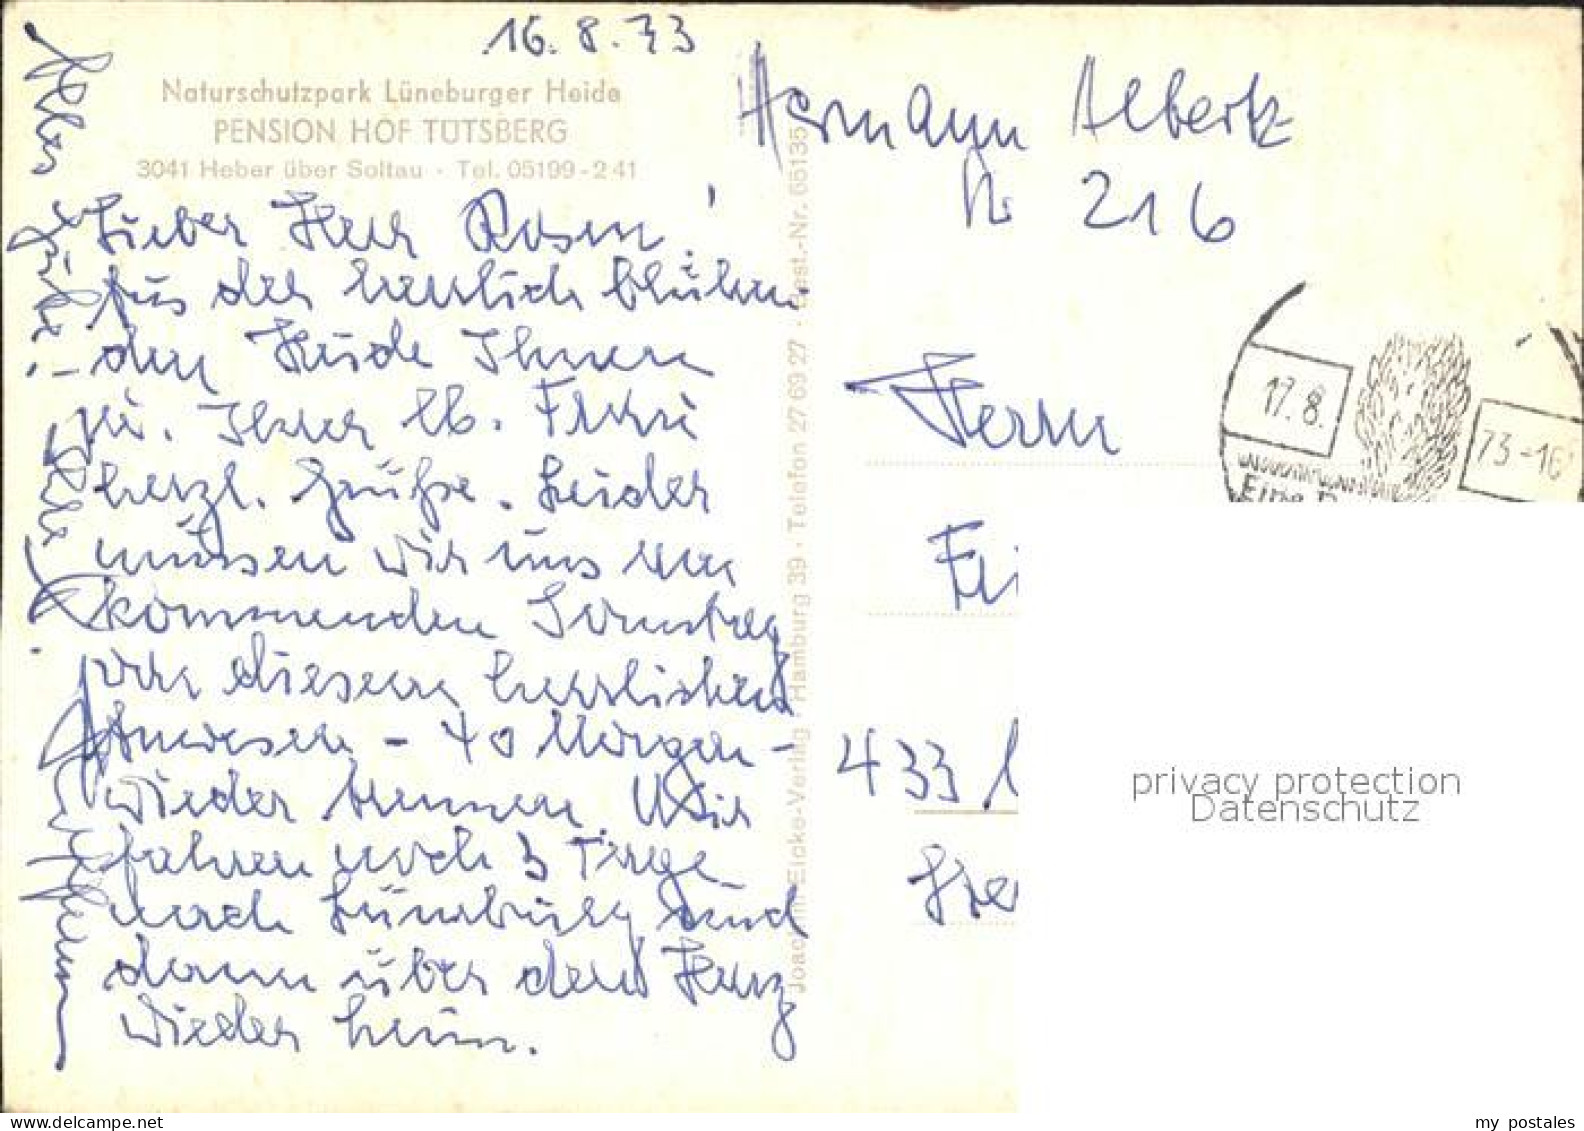 16.8.73
Naturschutzpark Lüneburger Heide
PENSION HOF TÜTSBERG
3041 Heber über Soltau · Tel. 05199-241
Lieber Herr Rosen!
Aus der herrlich blühen-
den Heide Ihnen
u. Ihrer lb. Frau
herzl. Grüße. Leider
müssen wir uns am
kommenden Sonntag
von diesem herrlichen
Anwesen - 40 Morgen -
wieder trennen. Wir
fahren noch 3 Tage
nach Lüneburg und
dann über den Harz
wieder heim.
Alles
Joachim Eicke-Verlag · Hamburg 39 · Telefon 27 69 27 · Best.-Nr. 66135
Hermann Albertz
Nr 216
17.8.
73-16
Eine
Herrn
433
privacy protection
Datenschutz
my postales
www.delcampe.net